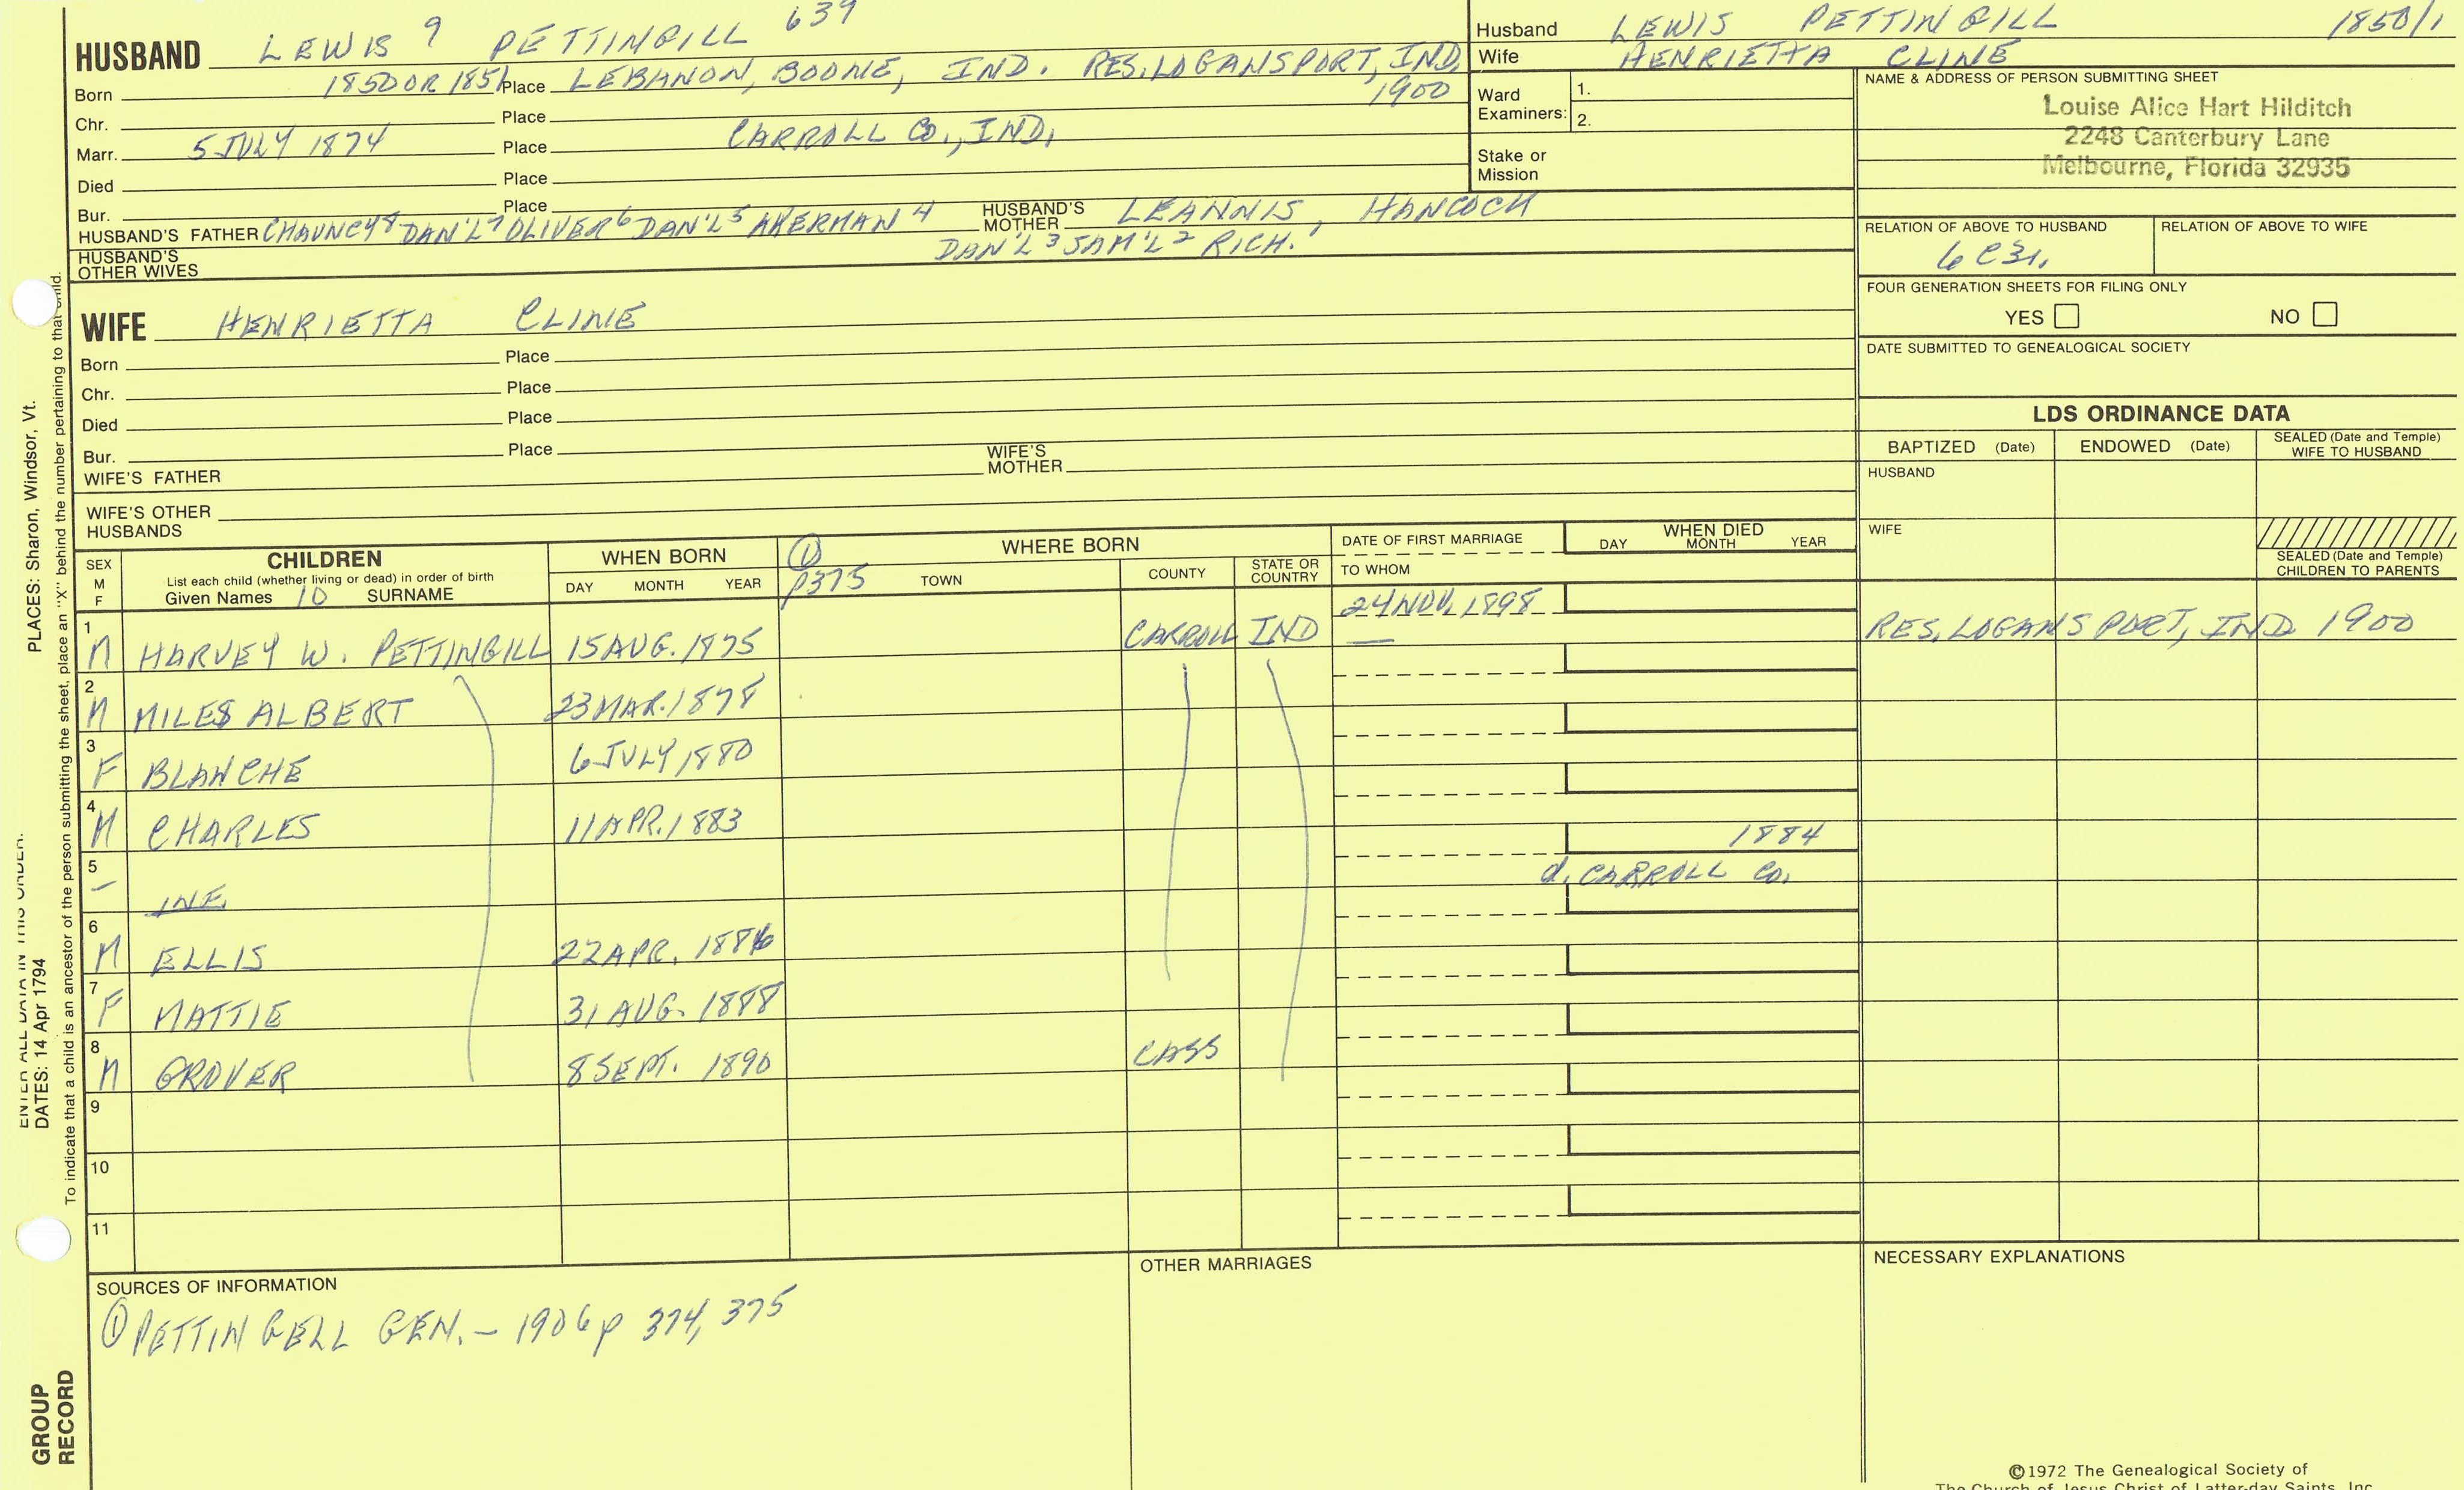 HUSBAND LEWIS 9 PETTINGILL 639
Born 1850 OR 1851 Place LEBANON, BOONE, IND. RES. LOGANSPORT, IND, 1900
Chr. Place
Marr. 5 JULY 1874 Place CARROLL CO., IND,
Died Place
Bur. Place
HUSBAND'S FATHER CHAUNCY 8 DAN'L 7 OLIVER 6 DAN'L 5 AKERMAN 4 HUSBAND'S MOTHER LEANNIS, HANCOCK
DAN'L 3 SAM'L 2 RICH. 1
HUSBAND'S OTHER WIVES
Husband LEWIS PETTINGILL 1850/1
Wife HENRIETTA CLINE
Ward Examiners: 1.
2.
Stake or Mission
NAME & ADDRESS OF PERSON SUBMITTING SHEET
Louise Alice Hart Hilditch
2248 Canterbury Lane
Melbourne, Florida 32935
RELATION OF ABOVE TO HUSBAND RELATION OF ABOVE TO WIFE
6C3r,
FOUR GENERATION SHEETS FOR FILING ONLY
YES NO
DATE SUBMITTED TO GENEALOGICAL SOCIETY
WIFE HENRIETTA CLINE
Born Place
Chr. Place
Died Place
Bur. Place
WIFE'S FATHER WIFE'S MOTHER
WIFE'S OTHER HUSBANDS
LDS ORDINANCE DATA
BAPTIZED (Date) ENDOWED (Date) SEALED (Date and Temple) WIFE TO HUSBAND
HUSBAND
WIFE
SEALED (Date and Temple) CHILDREN TO PARENTS
SEX M F
CHILDREN
List each child (whether living or dead) in order of birth
Given Names 10 SURNAME
WHEN BORN
DAY MONTH YEAR
① p375
WHERE BORN
TOWN COUNTY STATE OR COUNTRY
DATE OF FIRST MARRIAGE
TO WHOM
WHEN DIED
DAY MONTH YEAR
1 M HARVEY W. PETTINGILL 15 AUG. 1875 CARROLL IND 24 NOV, 1898 — RES. LOGANSPORT, IND 1900
2 M MILES ALBERT 23 MAR. 1878
3 F BLANCHE 6 JULY 1880
4 M CHARLES 11 APR. 1883
5 — INF. 1884
d. CARROLL CO,
6 M ELLIS 22 APR. 1886
7 F MATTIE 31 AUG. 1888
8 M GROVER 8 SEPT. 1890 CASS
9
10
11
SOURCES OF INFORMATION
① PETTINGELL GEN. - 1906 p 374, 375
OTHER MARRIAGES
NECESSARY EXPLANATIONS
©1972 The Genealogical Society of
The Church of Jesus Christ of Latter-day Saints, Inc.
PLACES: Sharon, Windsor, Vt.
ENTER ALL DATA IN THIS ORDER:
DATES: 14 Apr 1794
To indicate that a child is an ancestor of the person submitting the sheet, place an "X" behind the number pertaining to that child.
GROUP
RECORD